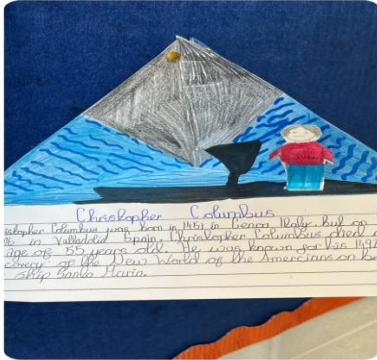 Christopher Columbus
istopher Columbus was born in 1451 in Genoa Italy. but on
06 in Valladolid Spain, Christopher Columbus died a
age of 55 years old. He was known for his 1492
of the New World of the Amercians on b
ship Santa Maria.